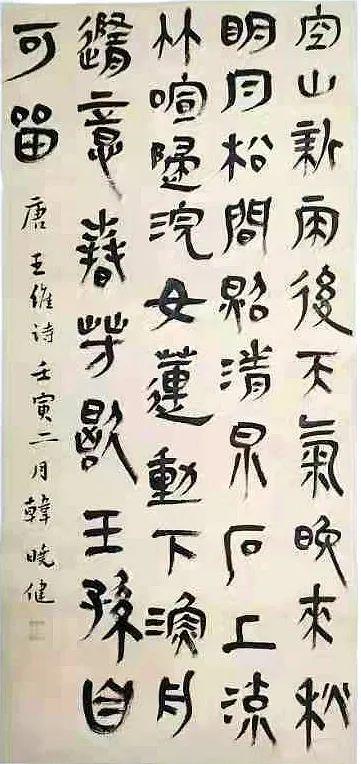 空山新雨後天氣晚來秋
明月松間照清泉石上流
竹喧歸浣女蓮動下漁舟
隨意春芳歇王孫自
可留
唐王維詩壬寅二月韓曉健